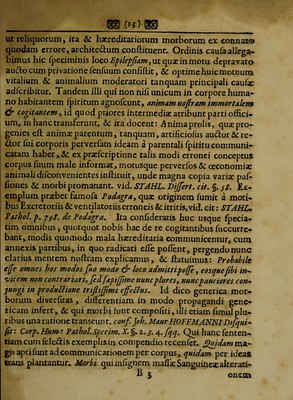 (15)
ut reliquorum, ita & hæreditariorum morborum ex connato
quodam errore, architectum constituent. Ordinis causa allega-
bimus hic speciminis loco Epilepsiam, ut quæ in motu depravato
aucto cum privatione sensuum consistit, & optime huic motuum
vitalium & animalium moderatori tanquam principali causæ
adscribitur. Tandem illi qui non nisi unicum in corpore huma-
no habitantem spiritum agnoscunt, animam nostram immortalem
& cogitantem, id quod priores intermediæ atribunt parti offici-
um, in hanc transferunt, & ita docent: Anima prolis, quæ pro-
genies est animæ parentum, tanquam, artificiosus auctor & re-
ctor sui corporis perversam ideam à parentali spiritu communi-
catam habet, & ex præscriptione talis modi erronei conceptus
corpus suum male informat, motusque perversos & œconomiæ
animali disconvenientes instituit, unde magna copia variæ pas-
siones & morbi promanant. vid. STAHL. Dissert. cit. §. 38. Ex-
emplum præbet famosa Podagra, quæ originem sumit à moti-
bus Excretoriis & ventilatoriis erroneis & irritis, vid. cit: STAHL.
Pathol. p. 798. de Podagra. Ita consideratis huc usque specia-
tim omnibus, quotquot nobis hac de re cogitantibus succurre-
bant, modis quomodo mala hæreditaria communicentur, cum
annexis partibus, in quo radicati esse possent, pergendo nunc
clarius mentem nostram explicamus, & statuimus: Probabile
esse omnes hos modos suo modo & loco admitti posse, eosque sibi in-
vicem non contrariari, sed sæpissime nunc plures, nunc pauciores con-
jungi in productione tristissimi effectus. Id dico genetica mor-
borum diversitas, differentiam in modo propagandi gene-
ricam infert, & qui morbi sunt compositi, illi etiam simul plu-
ribus una ratione transeunt. conf. Joh. Maur HOFFMANNI Disqui-
sit: Corp. Hum: Pathol. Specim. X. §. 2. 3. 4. sqq. Qui hanc senten-
tiam cum selectis exemplis in compendio recenset. Quidam ma-
gis apti sunt ad communicationem per corpus, quidam per ideas
trans plantantur. Morbi qui insignem massæ Sanguineæ alterati-
B 3
onem